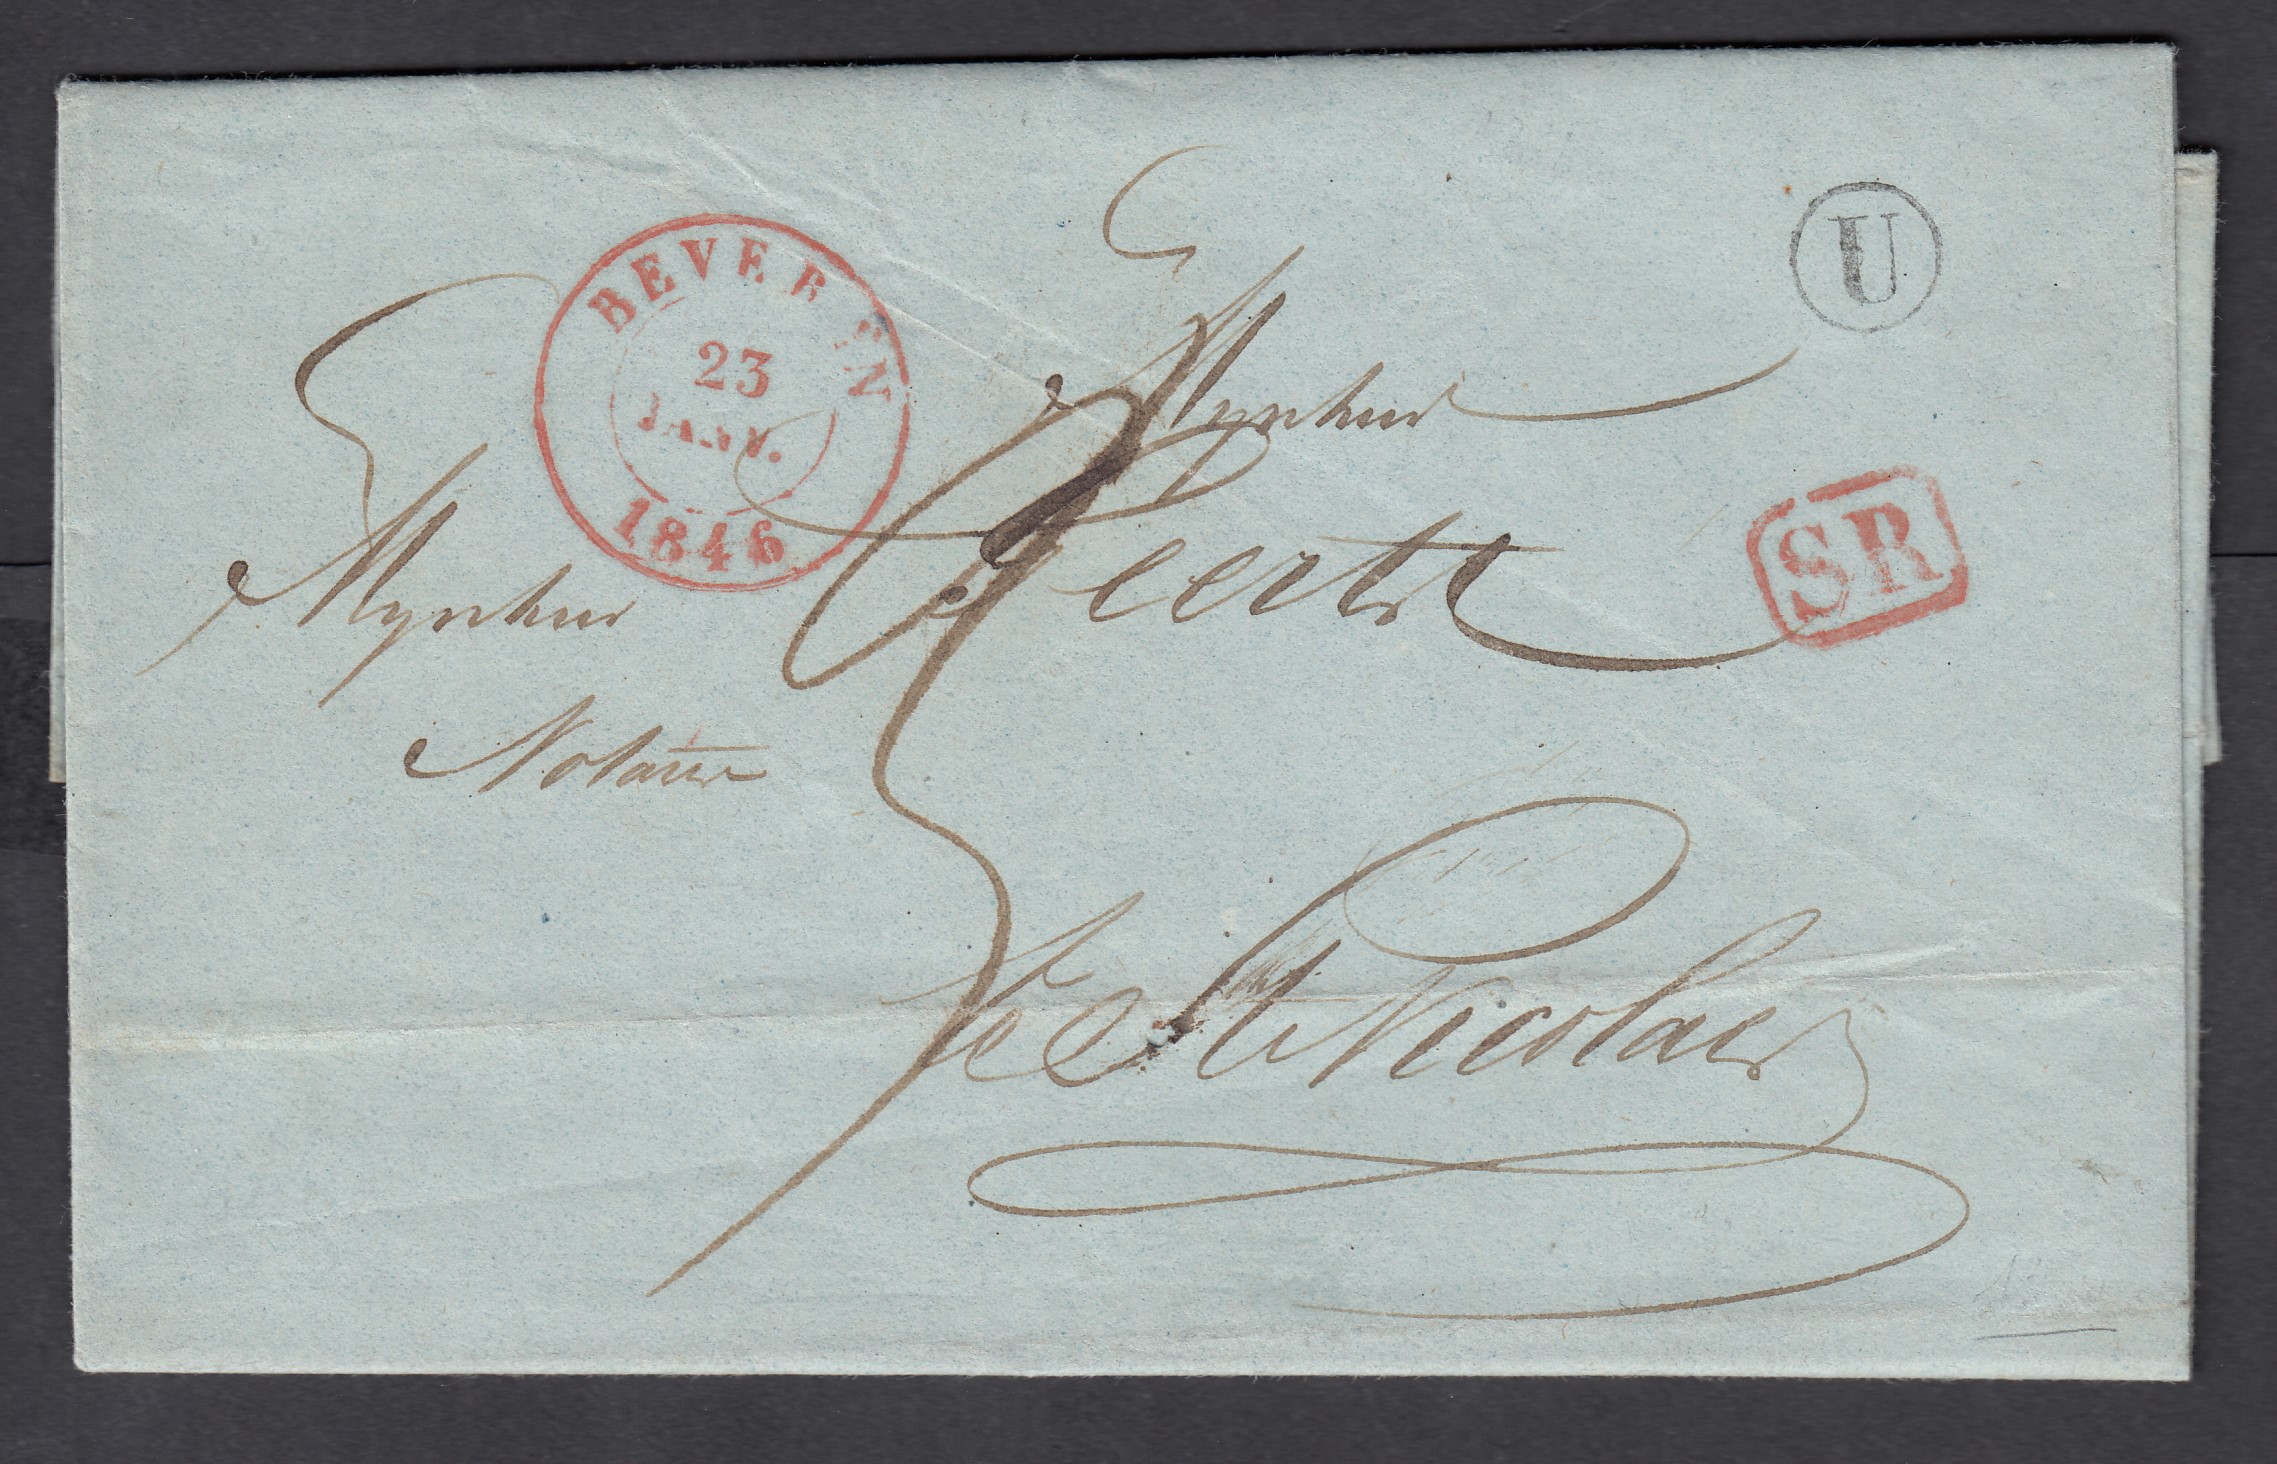 BEVEREN
23
JANV.
1846
U
SR
Mynheer
Mynheer
Peerts
Notaris
te St Nicolaes